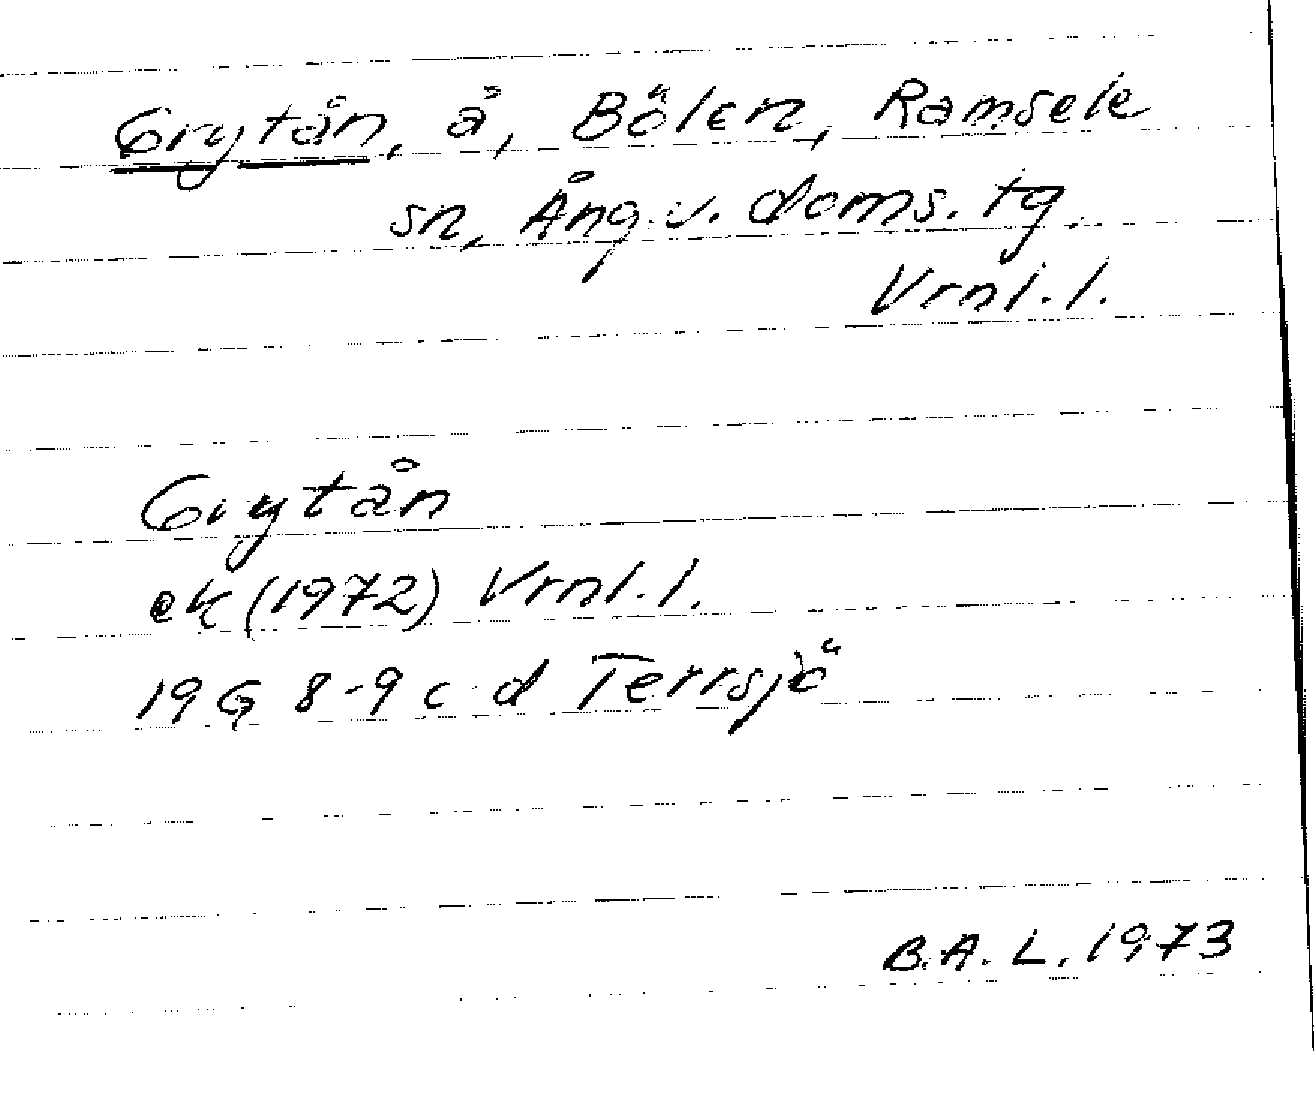 Grytån, å, Bölen, Ramsele
sn, Ång. v. doms. tg.
Vrnl. l.
Grytån
ek (1972) Vrnl. l.
19 G 8-9 c-d Terrsjö
B.A.L. 1973